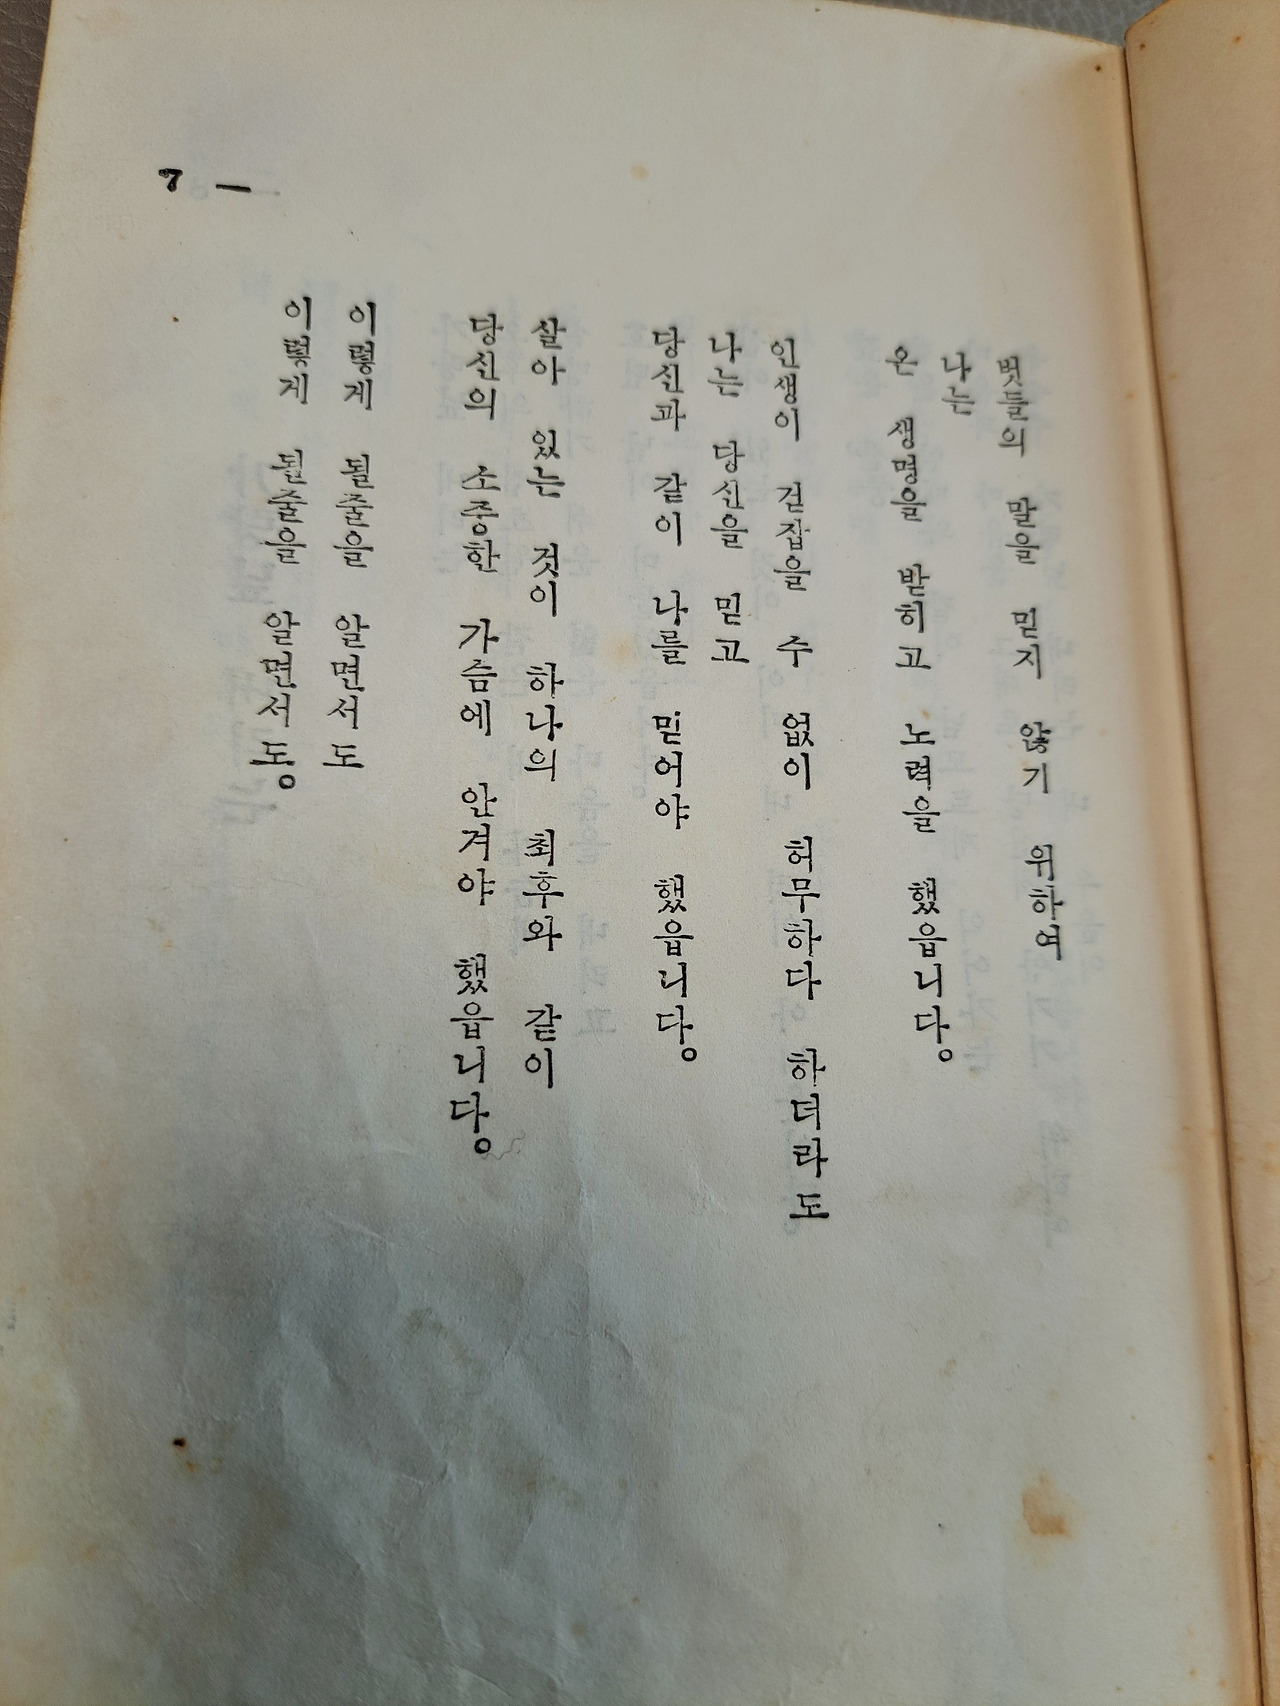 벗들의 말을 믿지 않기 위하여
나는
온 생명을 받히고 노력을 했읍니다。
인생이 걷잡을 수 없이 허무하다 하더라도
나는 당신을 믿고
당신과 같이 나를 믿어야 했읍니다。
살아 있는 것이 하나의 최후와 같이
당신의 소중한 가슴에 안겨야 했읍니다。
이렇게 될줄을 알면서도
이렇게 될줄을 알면서도。
7 —